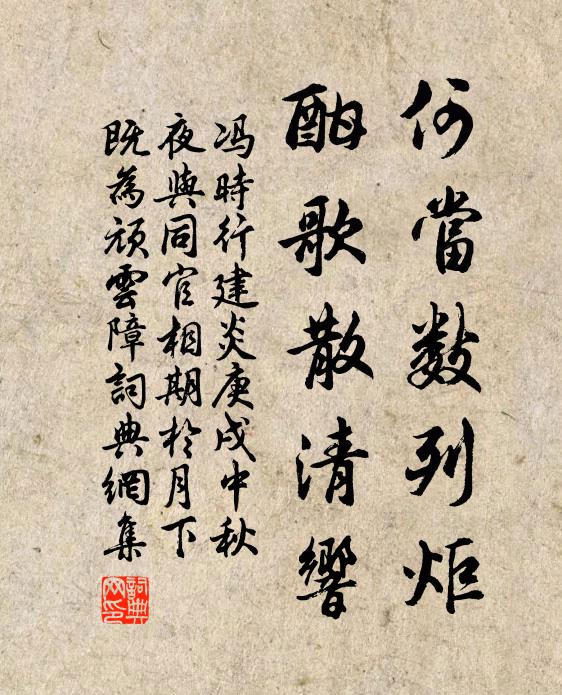 何當數列炬
酣歌散清響
馮時行建炎庚戌中秋
夜與同官相期於月下
既為頑雲障詞典網集
詞典